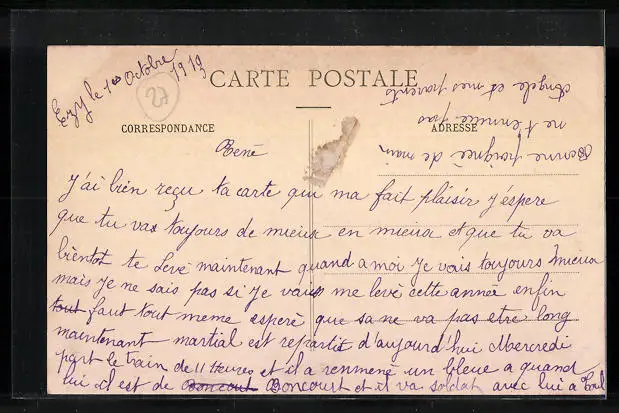 Ezy le 1er Octobre 1913
27
CARTE POSTALE
CORRESPONDANCE
ADRESSE
René
J'ai bien reçu ta carte qui ma fait plaisir j'éspere
que tu vas toujours de mieux en mieux et que tu va
bientot te levé maintenant quand a moi je vais toujours mieux
mais je ne sais pas si je vais me levé cette année enfin
tout faut tout meme esperé que sa ne va pas etre long
maintenant martial est repartit d'aujourd'hui Mercredi
part le train de 11 Heures et il a renmené un bleue a quand
lui il est de Boncourt Boncourt et il va soldat avec lui a Toul
Bonne poigneé de main
ne t'ennuie pas
Angele et mes parents